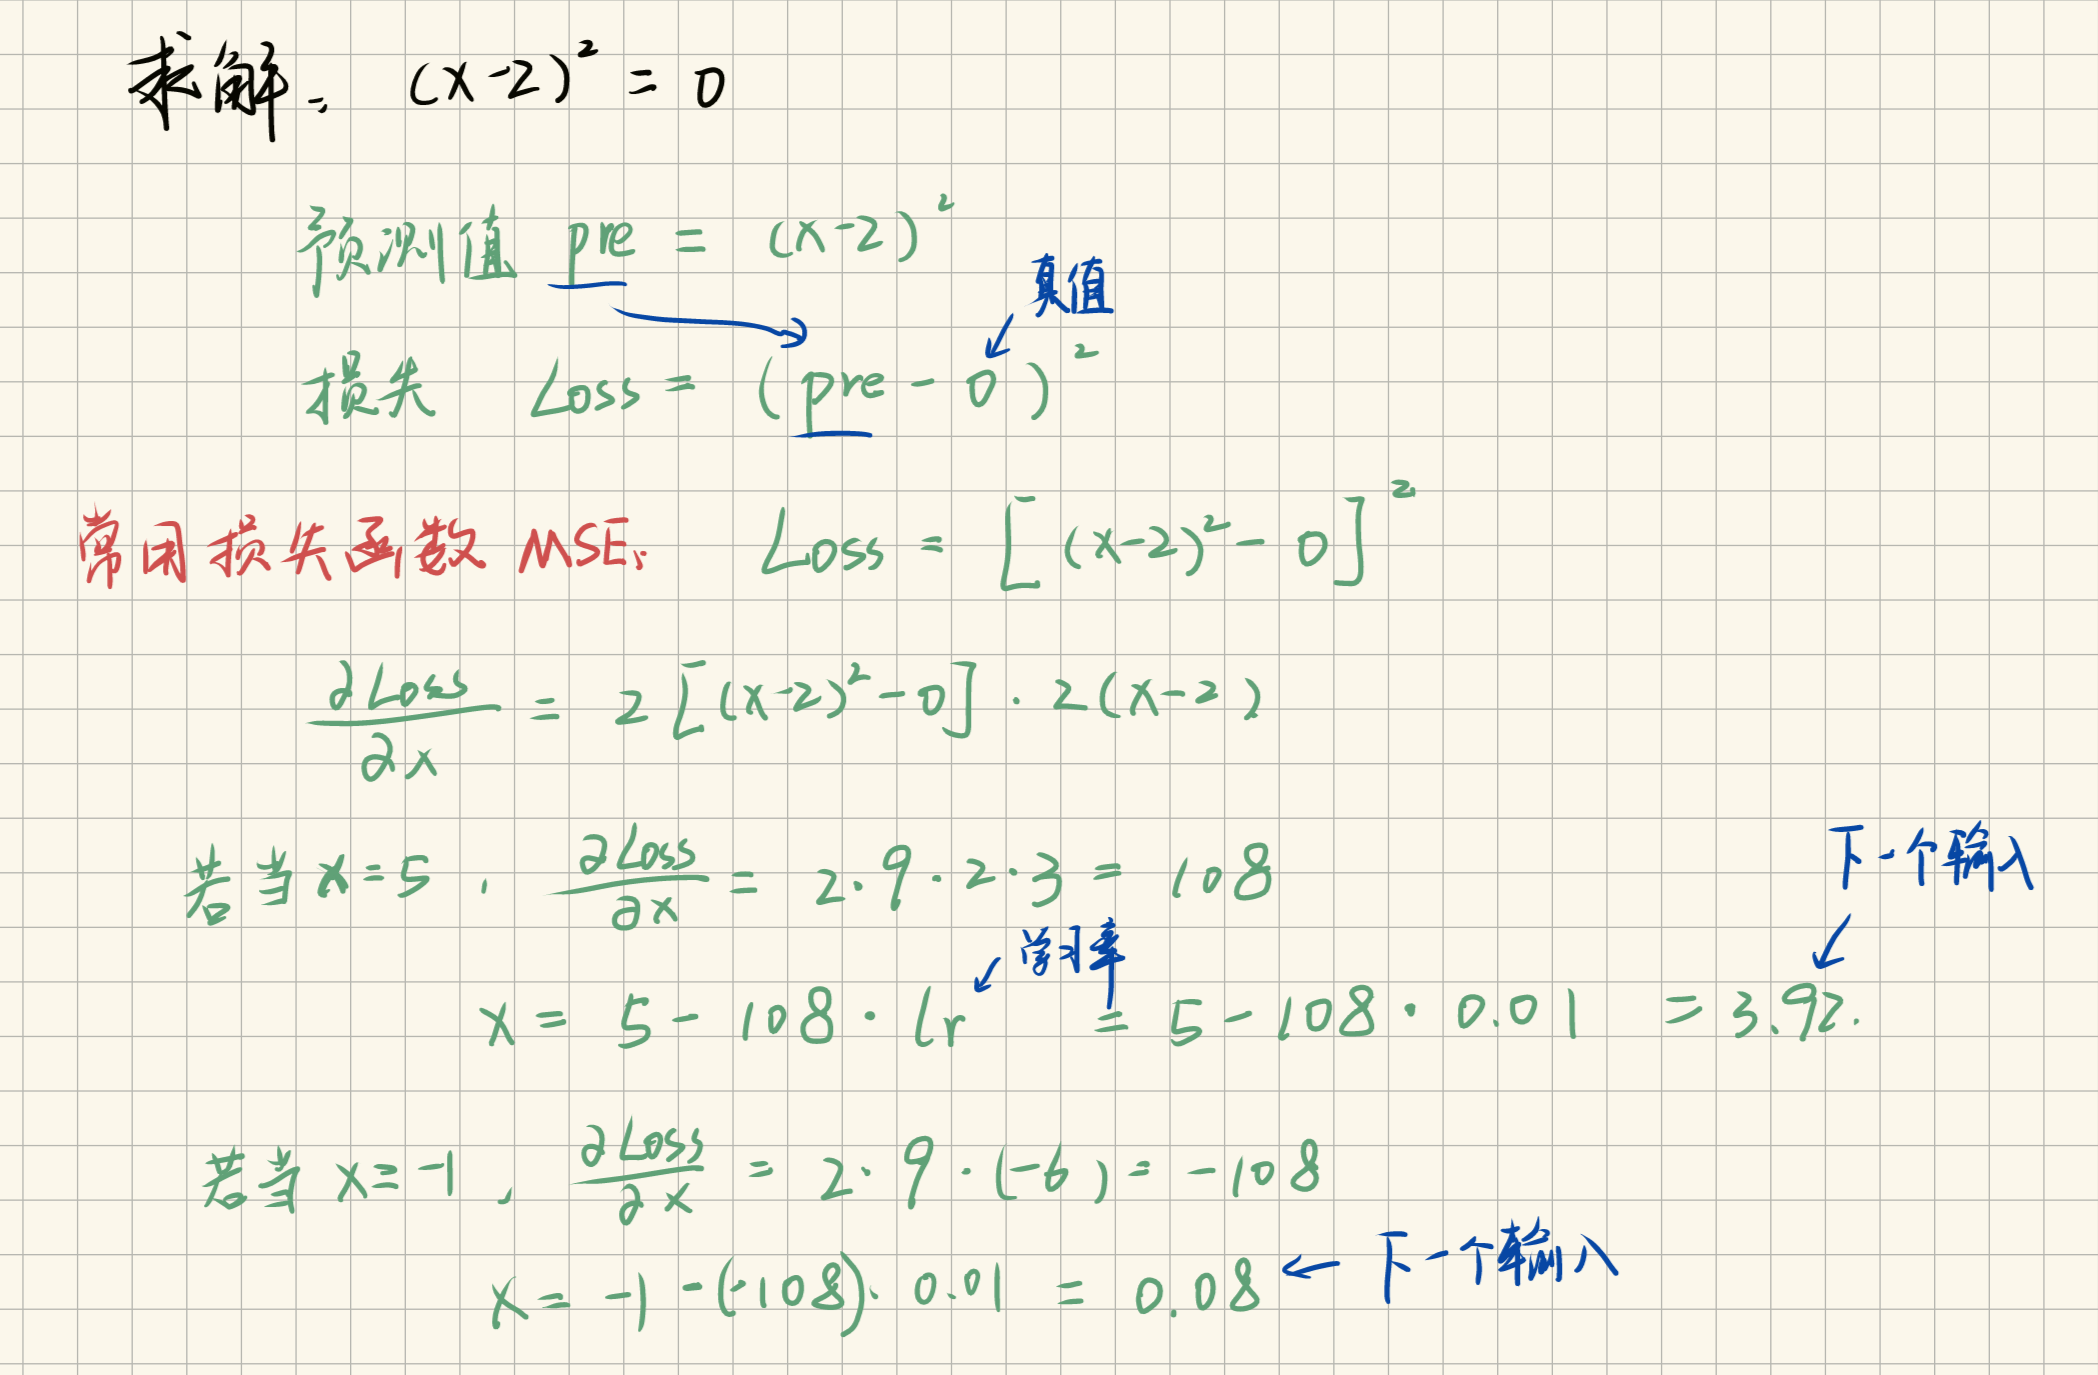 求解: (x-2)² = 0
预测值 pre = (x-2)²
真值
损失 Loss = (pre - 0)²
常用损失函数 MSE: Loss = [(x-2)² - 0]²
∂Loss/∂x = 2[(x-2)² - 0] · 2(x-2)
若当 x=5, ∂Loss/∂x = 2·9·2·3 = 108
下一个输入
学习率
x = 5 - 108 · lr = 5 - 108 · 0.01 = 3.92.
若当 x=-1, ∂Loss/∂x = 2·9·(-6) = -108
x = -1 - (-108)·0.01 = 0.08 ← 下一个输入